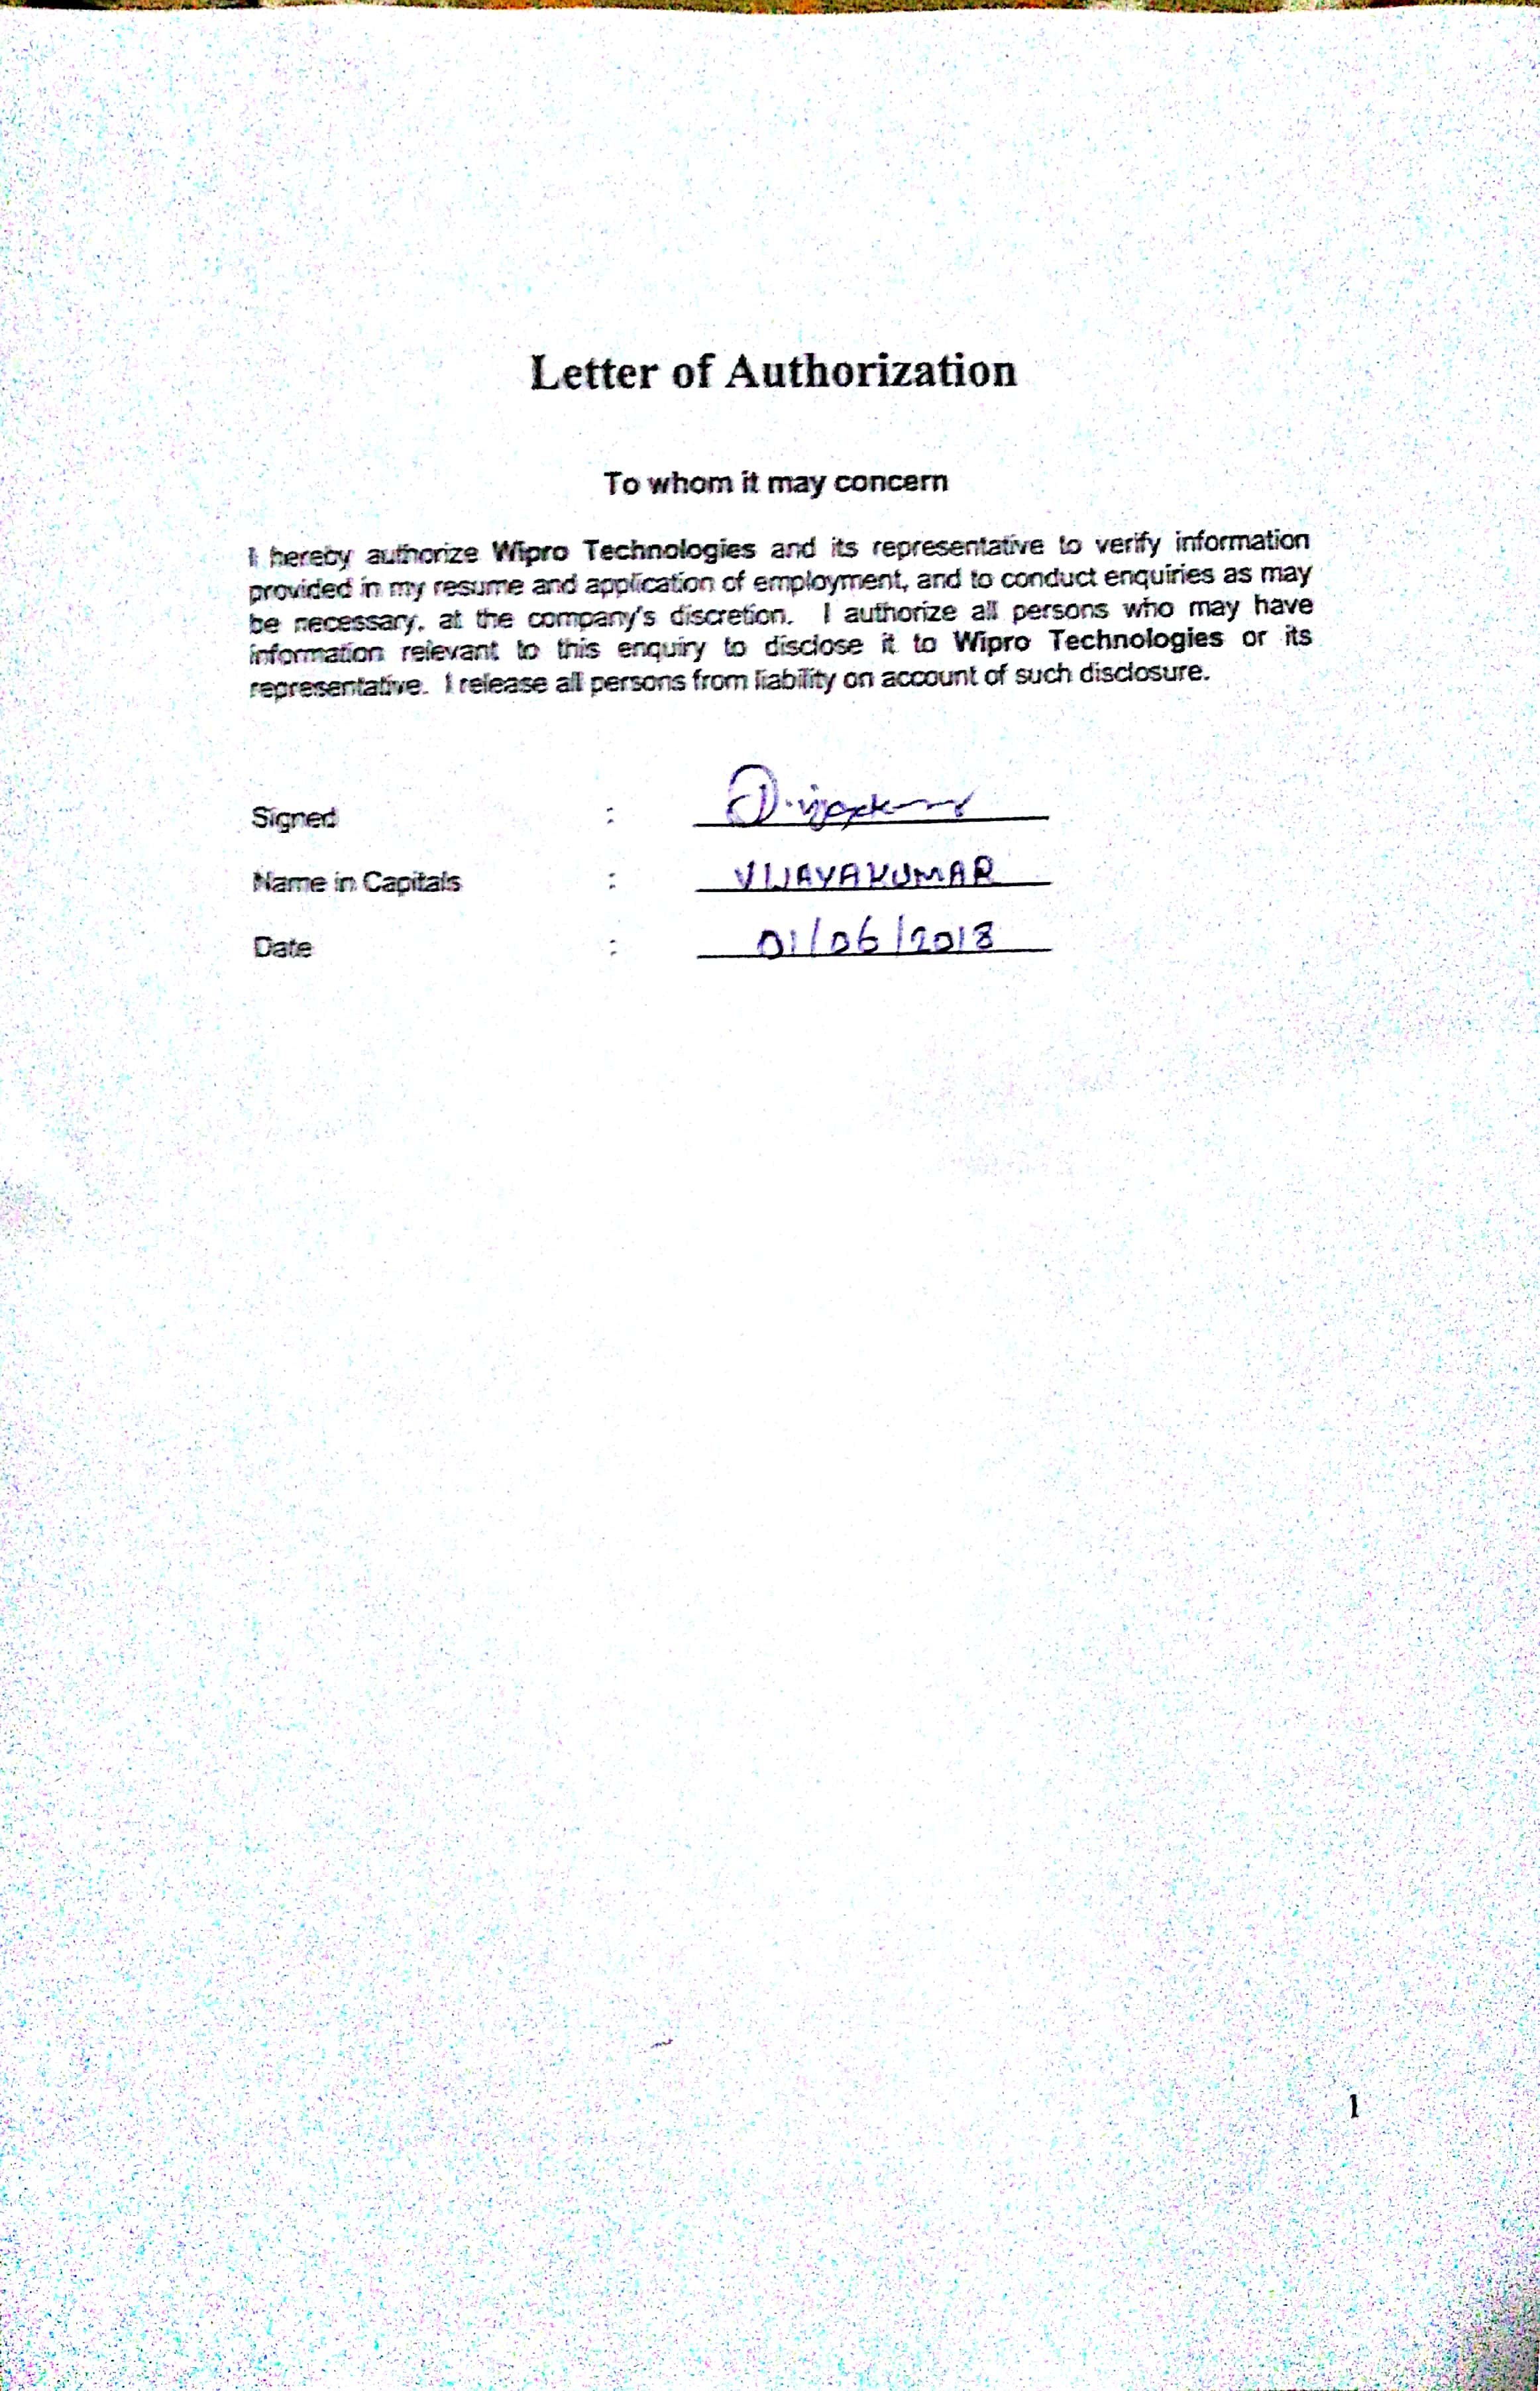 Letter of Authorization
To whom it may concern
I hereby authorize Wipro Technologies and its representative to verify information
provided in my resume and application of employment, and to conduct enquiries as may
be necessary, at the company's discretion. I authorize all persons who may have
information relevant to this enquiry to disclose it to Wipro Technologies or its
representative. I release all persons from liability on account of such disclosure.
Signed :
Name in Capitals : VIJAYAKUMAR
Date : 01/06/2018
1